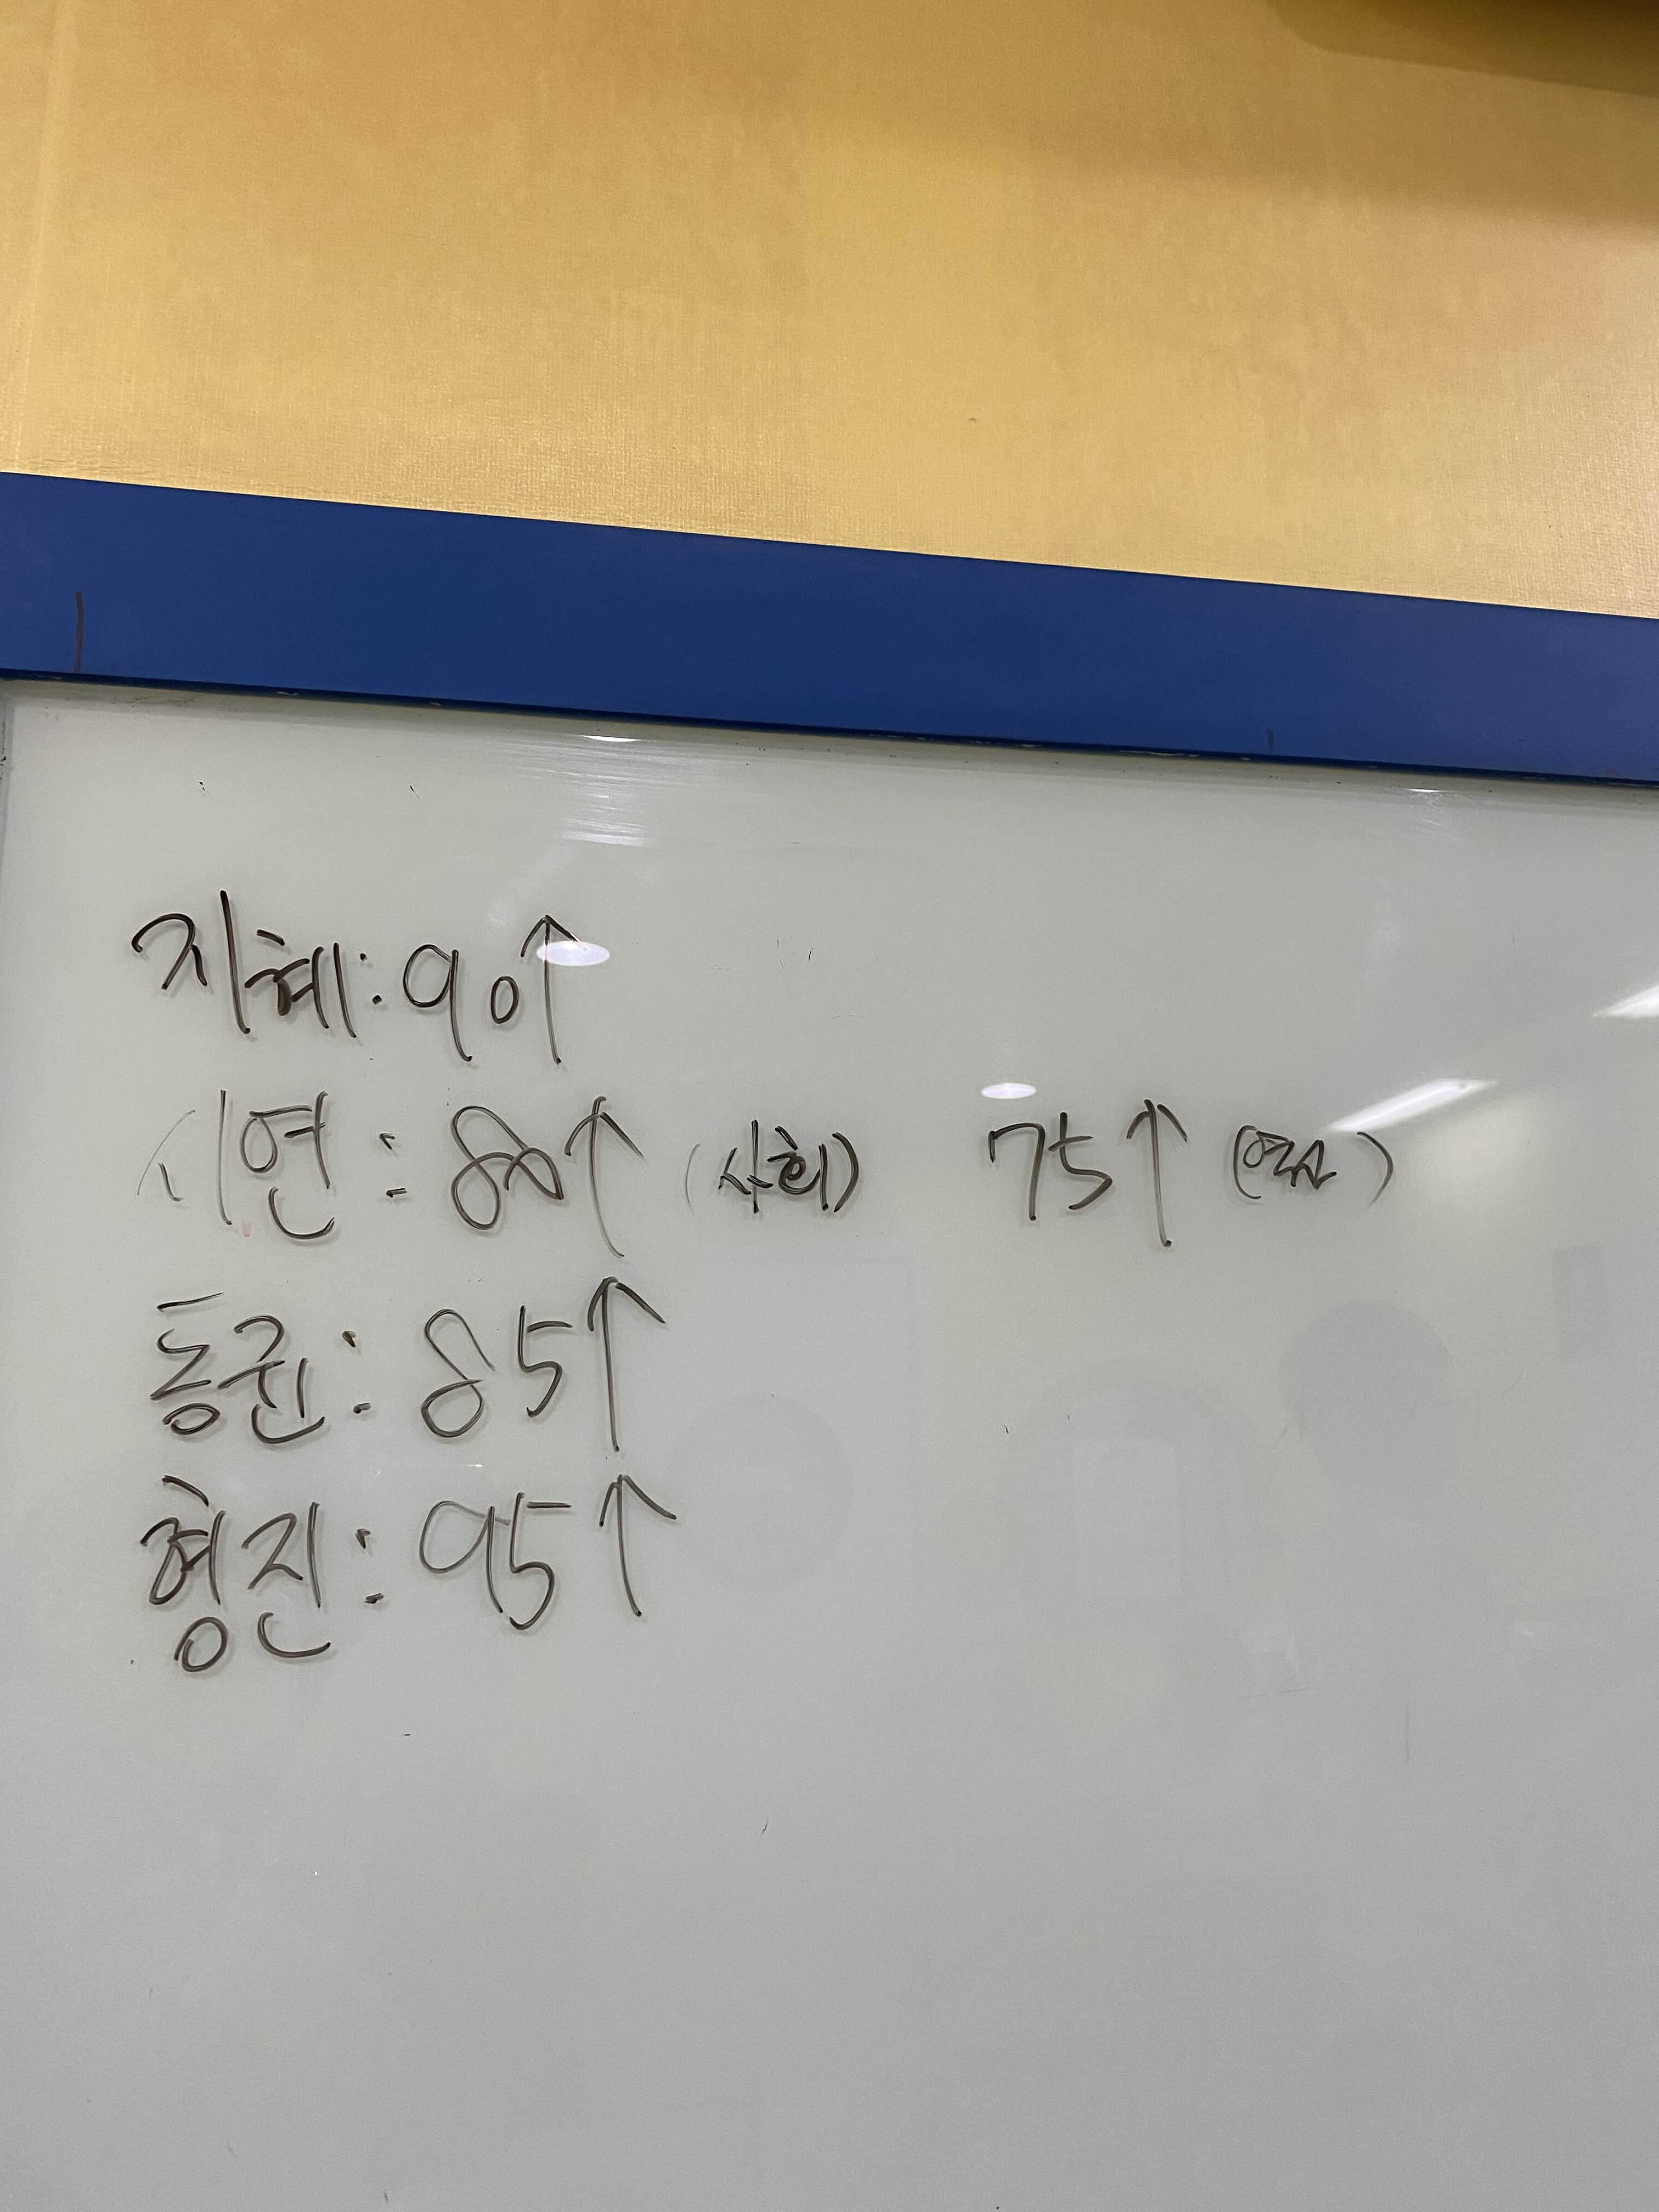 지혜: 90↑
시연: 80↑ (사회) 75↑ (역사)
동권: 85↑
형진: 95↑